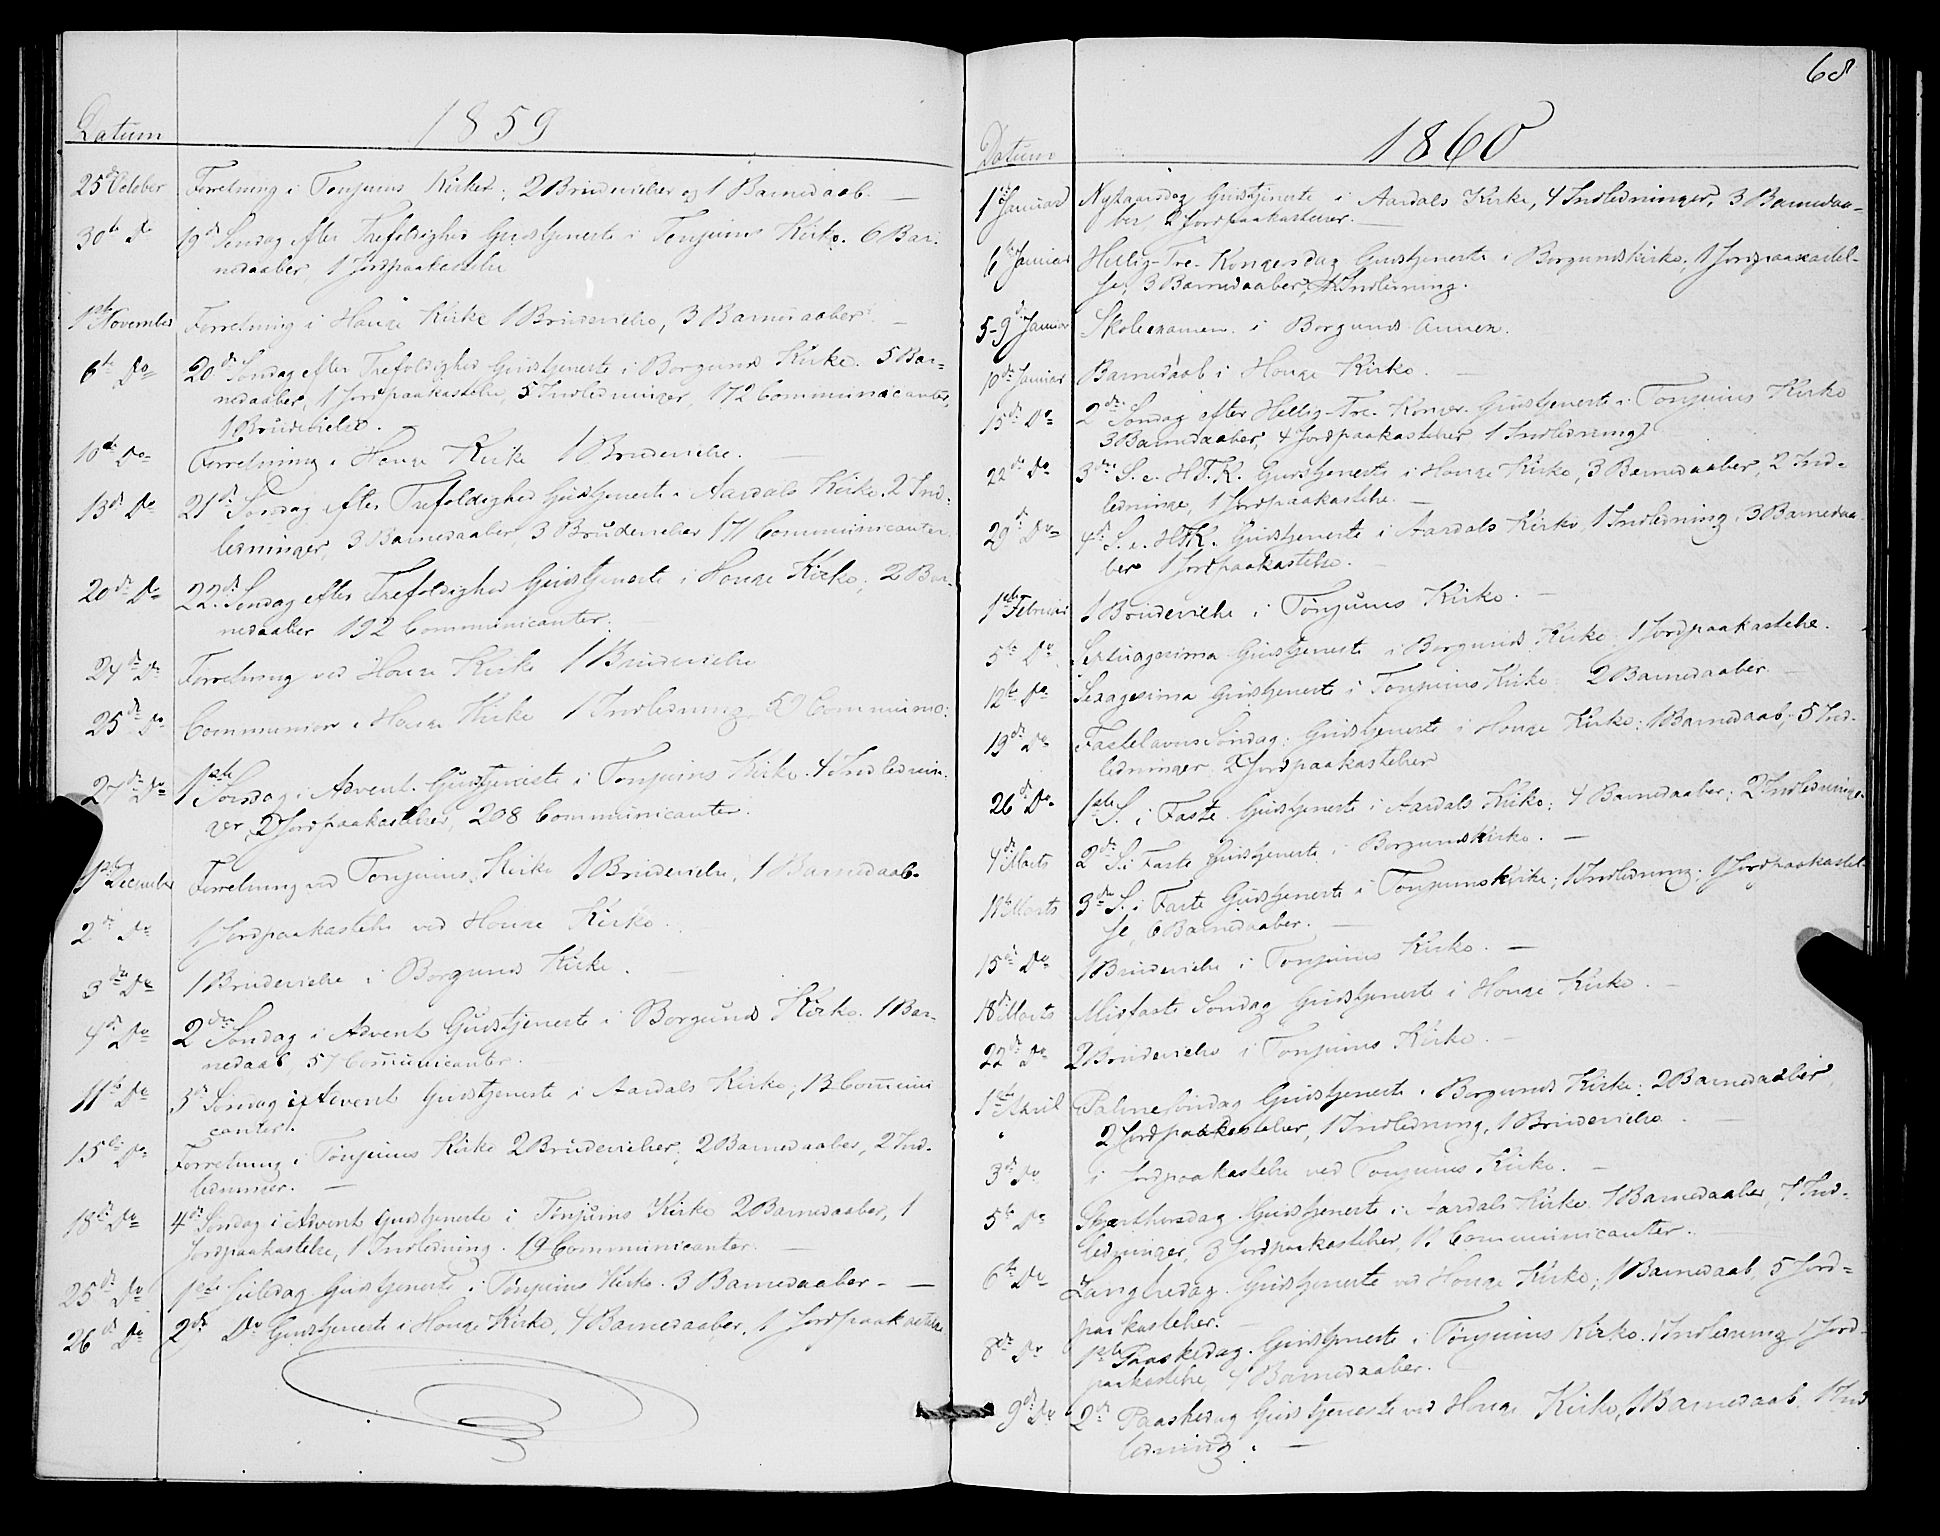 Datum
1859
25de October Forretning i Tonjums Kirke; 2 Brudevielser og 1 Barnedaab. —
30te Do 19de Søndag efter Trefoldighed Gudstjeneste i Tonjums Kirke. 6 Bar-
nedaaber, 1 Jordpaakastelse
1ste November Forretning i Houge Kirke 1 Brudevielse, 3 Barnedaaber. —
6te Do 20de Søndag efter Trefoldighed Gudstjeneste i Borgund Kirke. 5 Bar-
nedaaber, 1 Jordpaakastelse, 5 Indledninger, 172 Communicanter,
1 Brudevielse.
10de Do Forretning i Houge Kirke 1 Brudevielse. —
13de Do 21de Søndag efter Trefoldighed Gudstjeneste i Aardals Kirke, 2 Ind-
ledninger, 3 Barnedaaber 3 Brudevielser 171 Communicanter.
20de Do 22de Søndag efter Trefoldighed Gudstjeneste i Houge Kirke; 2 Bar-
nedaaber 192 Communicanter. —
24de Do Forretning ved Houge Kirke 1 Brudevielse
25de Do Communion i Houge Kirke 1 Indledning, 52 Communic:
27de Do 1ste Søndag i Advent. Gudstjeneste i Tonjums Kirke. 4 Indlednin-
ger, 2 Jordpaakastelser, 208 Communicanter.
1ste December Forretning ved Tonjums Kirke 1 Brudevielse, 1 Barnedaab.
2de Do 1 Jordpaakastelse ved Houge Kirke.
3de Do 1 Brudevielse i Borgund Kirke. —
4de Do 2den Søndag i Advent Gudstjeneste i Borgund Kirke. 1 Bar-
nedaab, 57 Com̄unicanter.
11te Do 3de Søndag i Advent Gudstjeneste i Aardals Kirke; 13 Com̄uni
canter.
15de Do Forretning i Tonjums Kirke 2 Brudevielser, 2 Barnedaaber, 2 Ind-
ledninger. —
18de Do 4de Søndag i Advent Gudstjeneste i Tonjums Kirke 2 Barnedaaber, 1
Jordpaakastelse, 1 Indledning. 19 Communicanter. —
25de Do 1ste Juledag Gudstjeneste i Tonjums Kirke. 3 Barnedaaber. —
26de Do 2de Do Gudstjeneste i Houge Kirke, 4 Barnedaaber, 1 Jordpaakastelse
68
Datum
1860
1ste Januar Nytaarsdag Gudstjeneste i Aardals Kirke, 4 Indledninger, 3 Barnedaa-
ber, 2 Jordpaakastelser. —
6te Januar Hellig-Tre-Kongersdag Gudstjeneste i Borgunds Kirke, 1 Jordpaakastel-
se, 3 Barnedaaber, 1 Indledning.
5-9de Januar Skoleexamen i Borgunds Annex.
10de Januar Barnedaab i Houge Kirke. —
15de Do 2de Søndag efter Hellig-Tre-Konger. Gudstjeneste i Tonjums Kirke
3 Barnedaaber, 4 Jordpaakastelser 1 Indledning.
22de Do 3die S. e. H.T.K. Gudstjeneste i Houge Kirke, 3 Barnedaaber, 2 Ind-
ledninge, 1 Jordpaakastelse. —
29de Do 4de S. e. H.T.K. Gudstjeneste i Aardals Kirke, 1 Indledning, 3 Barnedaa-
ber 1 Jordpaakastelse. —
1ste Februar 1 Brudevielse i Tonjums Kirke. —
5te Do Septuagesima Gudstjeneste i Borgund Kirke. 1 Jordpaakastelse.
12te Do Sexagesima Gudstjeneste i Tonjums Kirke 2 Barnedaaber —
19de Do Fastelavns Søndag. Gudstjeneste i Houge Kirke. 1 Barnedaab, 5 Ind-
ledninger, 2 Jordpaakastelser
26de Do 1ste S. i Faste Gudstjeneste i Aardals Kirke; 4 Barnedaaber; 2 Indledninger.
4de Marts 2de S. i Faste Gudstjeneste i Borgunds Kirke. —
11te Marts 3de S. i Faste Gudstjeneste i Tonjums Kirke; 1 Indledning; 1 Jordpaakastel-
se, 6 Barnedaaber. —
15de Do 1 Brudevielse i Tonjums Kirke. —
18de Marts Midfaste Søndag Gudstjeneste i Houge Kirke. —
22de Do 2 Brudevielse i Tonjums Kirke. —
1ste April Palmesøndag Gudstjeneste i Borgunds Kirke; 2 Barnedaaber,
2 Jordpaakastelser, 1 Indledning, 1 Brudevielse. —
3de Do 1 Jordpaakastelse ved Tonjums Kirke. —
5te Do Skjærthorsdag Gudstjeneste i Aardals Kirke 1 Barnedaaber, 7 Ind-
ledninger, 3 Jordpaakastelser, 11 Communicanter. —
6te Do Langfredag. Gudstjeneste ved Houge Kirke; 1 Barnedaab, 5 Jord-
paakastelser. —
8de Do 1ste Paaskedag. Gudstjeneste i Tonjums Kirke. 1 Indledning 1 Jord-
paakastelse, 4 Barnedaaber. —
9de Do 2de Paaskedag Gudstjeneste ved Houge Kirke, 1 Barnedaab, 1 Ind
ledning. —